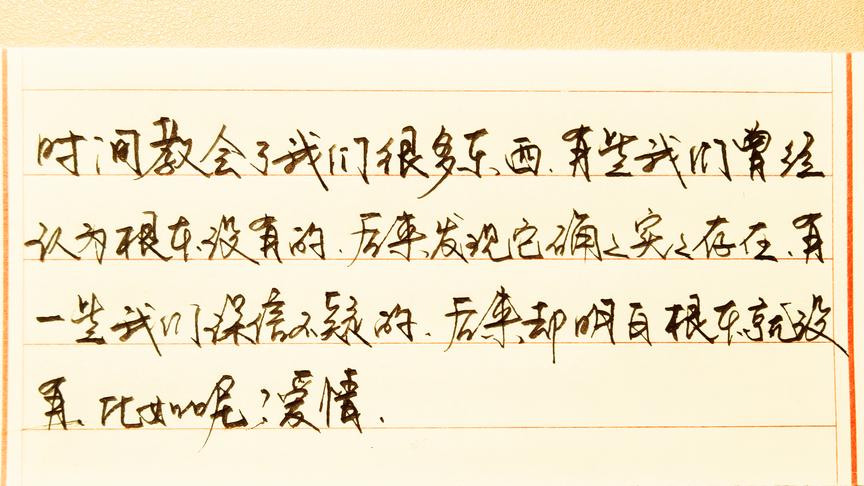 时间教会了我们很多东西、有些我们曾经
认为根本没有的、后来发现它确确实实存在、有
一些我们深信不疑的、后来却明白根本就没
有、比如呢?爱情、